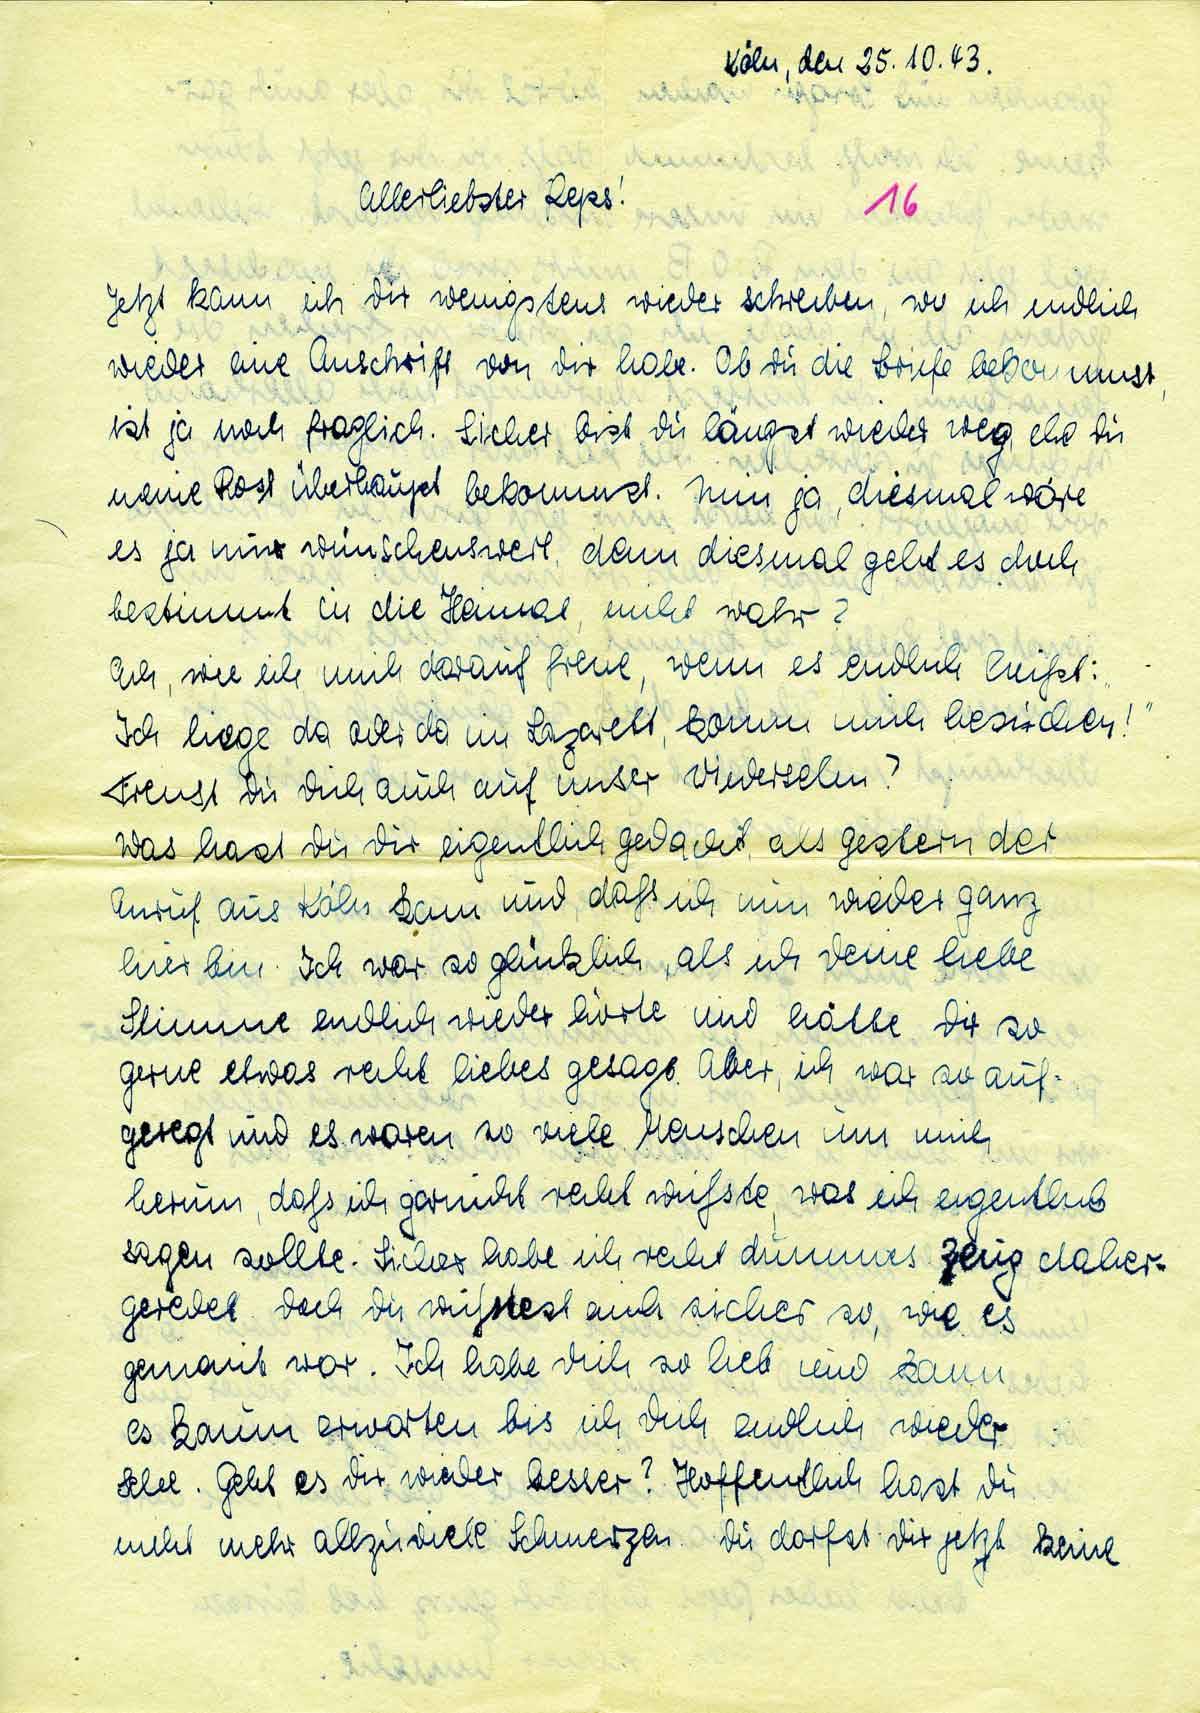 Köln, den 25.10.43.
Allerliebster Reps!
16
Jetzt kann ich dir wenigstens wieder schreiben, wo ich endlich
wieder eine Anschrift von dir habe. Ob du die Briefe bekommst,
ist ja noch fraglich. Sicher bist du längst wieder weg, ehe du
meine Post überhaupt bekommst. Nun ja, diesmal wäre
es ja nur wünschenswert, denn diesmal geht es doch
bestimmt in die Heimat, nicht wahr?
Ach, wie ich mich darauf freue, wenn es endlich heißt: „
Ich liege da oder da im Lazarett, komm mich besuchen!"
Freust du dich auch auf unser Wiedersehen?
Was hast du dir eigentlich gedacht, als gestern der
Anruf aus Köln kam und, daß ich nun wieder ganz
hier bin. Ich war so glücklich, als ich deine liebe
Stimme endlich wieder hörte und hätte dir so
gerne etwas recht liebes gesagt. Aber, ich war so auf-
geregt und es waren so viele Menschen um mich
herum, daß ich garnicht recht wußte, was ich eigentlich
sagen sollte. Sicher habe ich recht dummes Zeug daher-
geredet. Doch du wußtest auch sicher so, wie es
gemeint war. Ich habe dich so lieb und kann
es kaum erwarten bis ich dich endlich wieder
sehe. Geht es dir wieder besser? Hoffentlich hast du
nicht mehr allzuviele Schmerzen. Du darfst dir jetzt keine